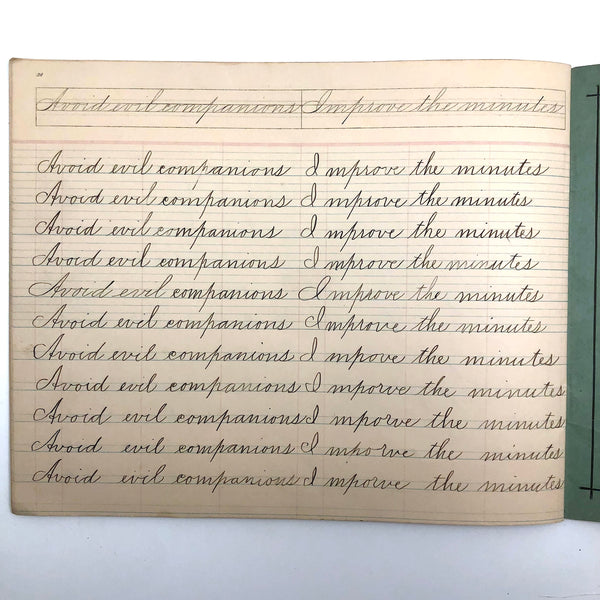 Avoid evil companions Improve the minutes
Avoid evil companions Improve the minutes
Avoid evil companions Improve the minutes
Avoid evil companions Improve the minutes
Avoid evil companions Improve the minutes
Avoid evil companions Improve the minutes
Avoid evil companions Improve the minutes
Avoid evil companions Impove the minutes
Avoid evil companions Imporve the minutes
Avoid evil companions Imporve the minutes
Avoid evil companions Imporve the minutes
Avoid evil companions Imporve the minutes